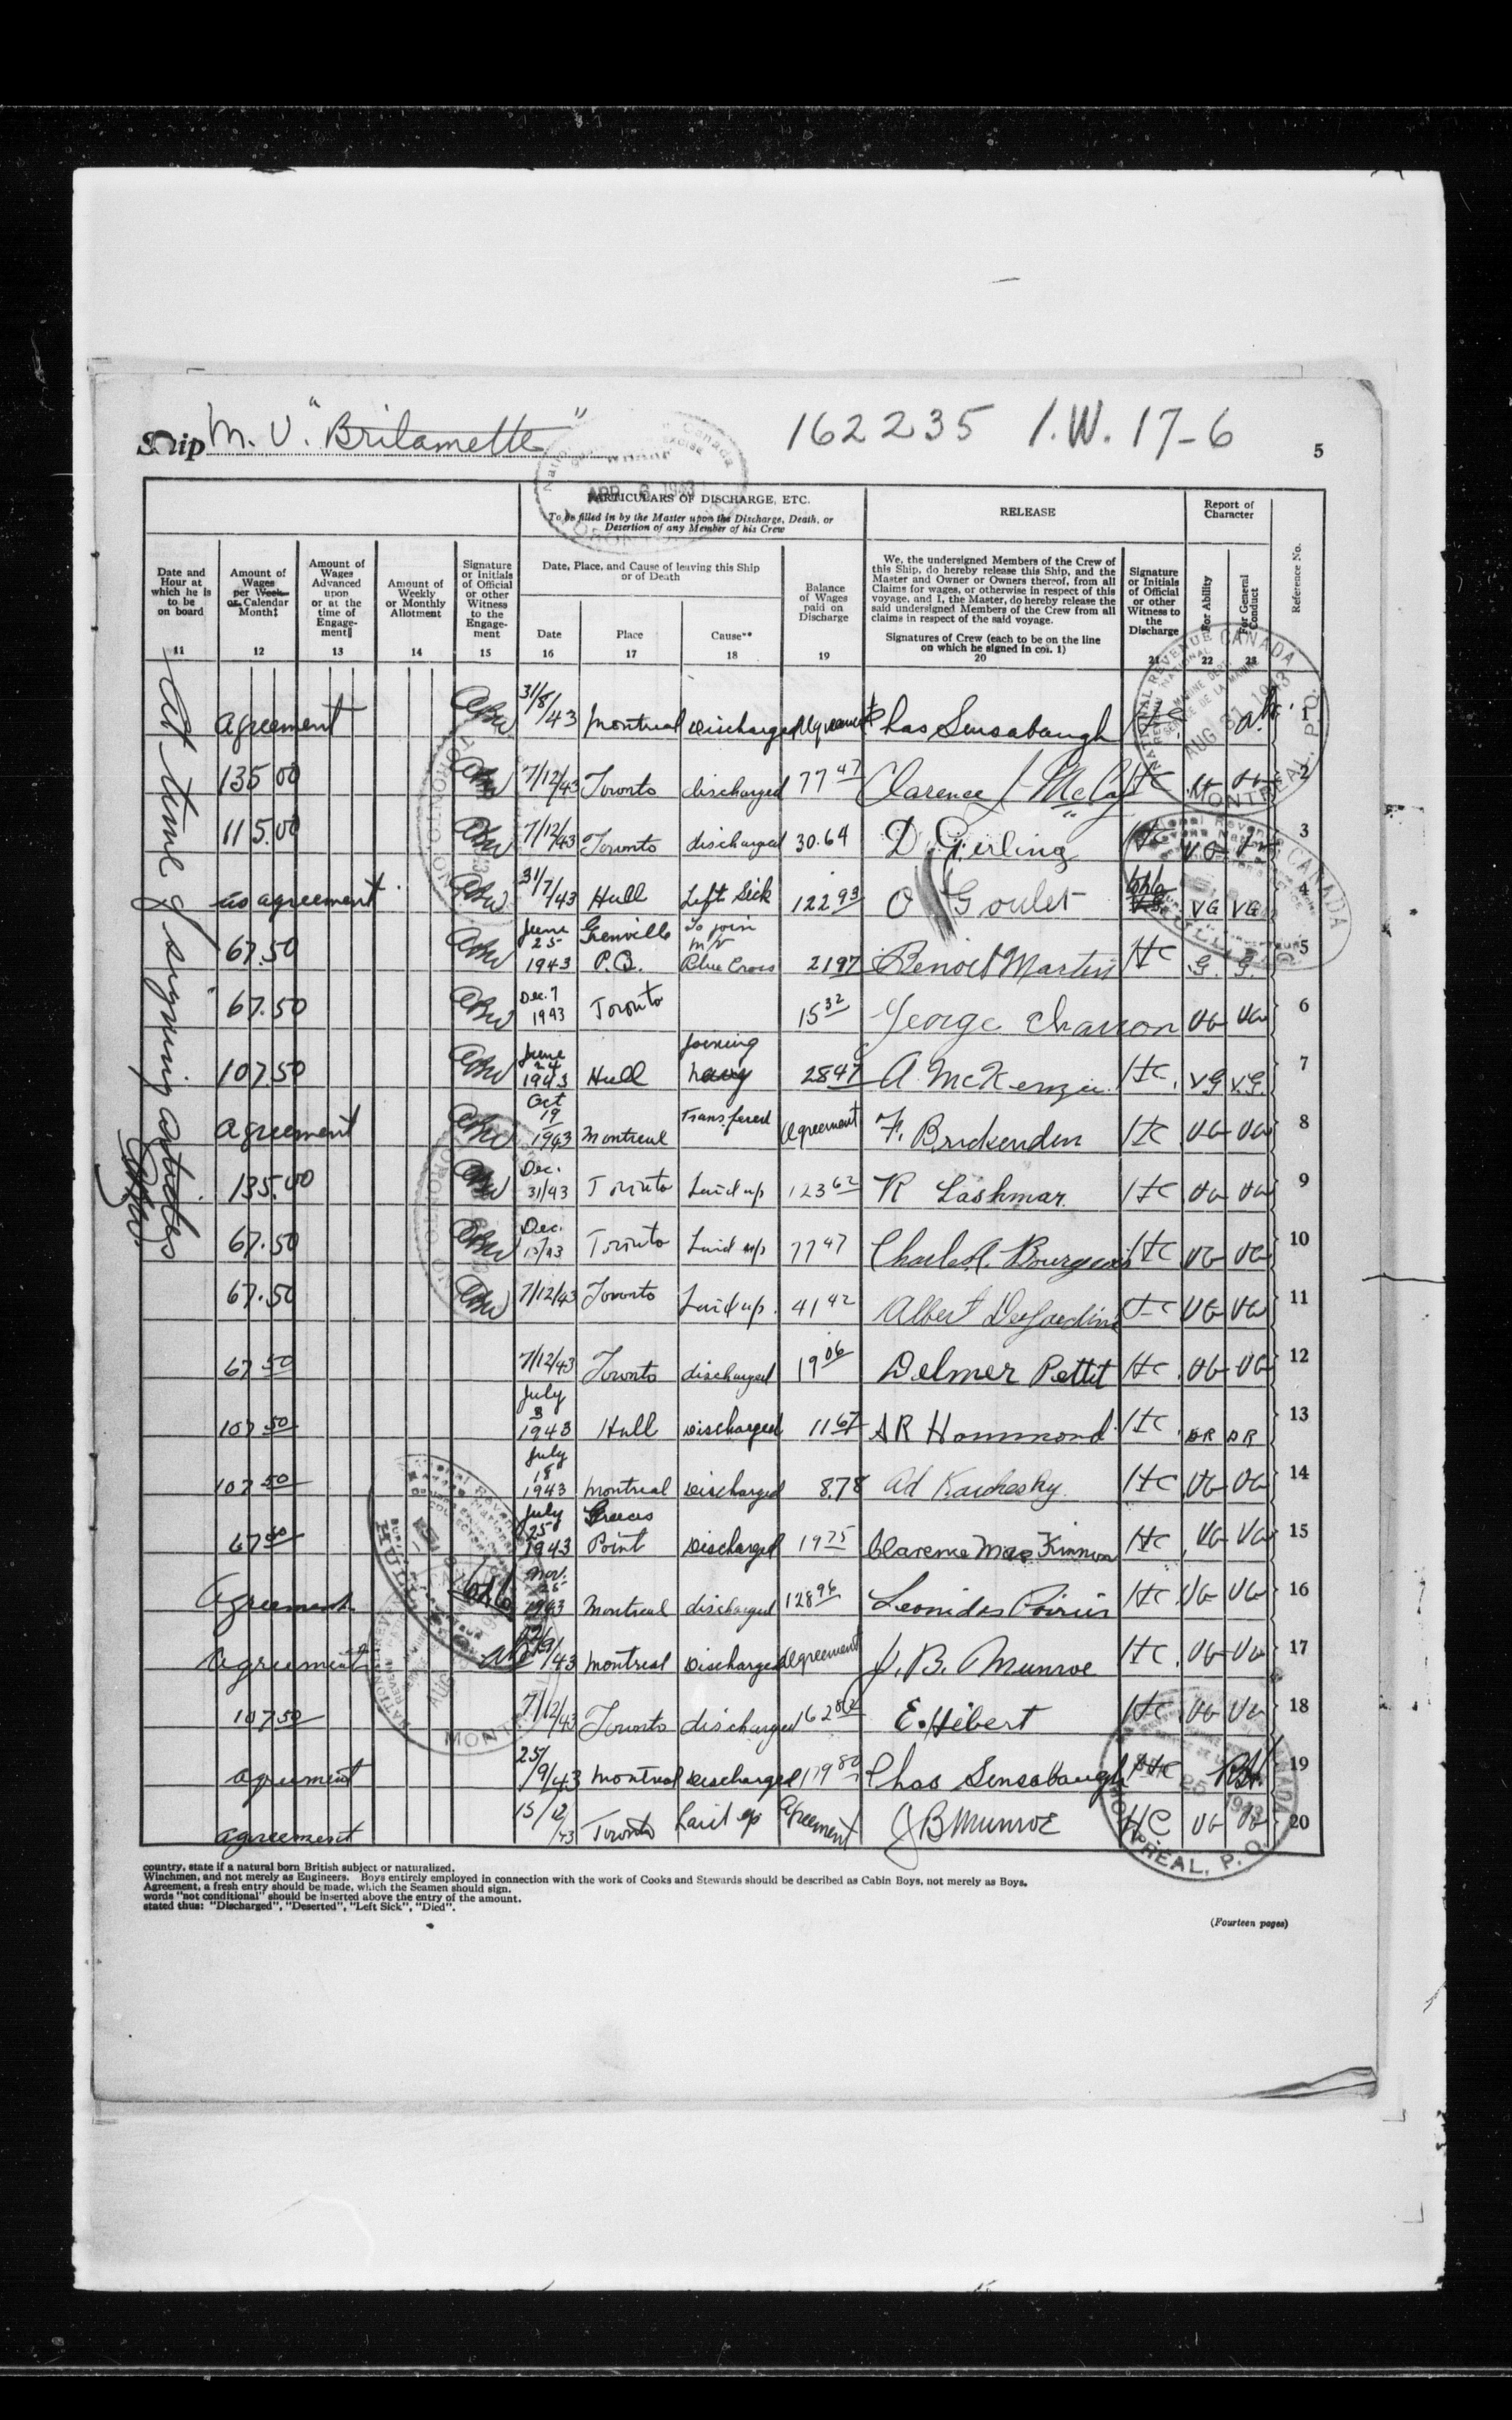 Ship M. V. "Britamette" 162235 I.W. 17-6 5
PARTICULARS OF DISCHARGE, ETC.
To be filled in by the Master upon the Discharge, Death, or Desertion of any Member of his Crew
RELEASE
Report of Character
Reference No.
Date and Hour at which he is to be on board
Amount of Wages per Week or Calendar Month‡
Amount of Wages Advanced upon or at the time of Engagement‖
Amount of Weekly or Monthly Allotment
Signature or Initials of Official or other Witness to the Engagement
Date, Place, and Cause of leaving this Ship or of Death
Date Place Cause**
Balance of Wages paid on Discharge
We, the undersigned Members of the Crew of this Ship, do hereby release this Ship, and the Master and Owner or Owners thereof, from all Claims for wages, or otherwise in respect of this voyage, and I, the Master, do hereby release the said undersigned Members of the Crew from all claims in respect of the said voyage.
Signatures of Crew (each to be on the line on which he signed in col. 1)
Signature or Initials of Official or other Witness to the Discharge
For Ability
For General Conduct
11 12 13 14 15 16 17 18 19 20 21 22 23
At time of signing articles
agreement 31/8/43 Montreal Discharged Agreement Chas Sensabaugh 1
135 00 7/12/43 Toronto discharged 77 47 Clarence J McCoy HC 2
115.00 7/12/43 Toronto discharged 30.64 D. Gerling HC VG 3
as agreement 31/7/43 Hull Left Sick 122 93 O Goulet VG VG 4
67.50 June 25 1943 Grenville P.Q. To join m/v Blue Cross 21 97 Benoit Martin HC G. G. 5
67.50 Dec. 7 1943 Toronto 15 32 George Charron VG VG 6
107.50 June 24 1943 Hull joining navy 28 47 A. McKenzie HC. VG V.G. 7
agreement Oct 19 1943 Montreal Transfered Agreement F. Brickenden HC VG VG 8
135.00 Dec. 31/43 Toronto Laid up 123 62 R Lashmar HC VG VG 9
67.50 Dec. 15/43 Toronto Laid up 77 47 Charles A. Bourgeois HC VG VG 10
67.50 7/12/43 Toronto Laid up. 41 42 Albert Desjardins HC VG VG 11
67 50 7/12/43 Toronto discharged 19 06 Delmer Pettit HC VG VG 12
107 50 July 3 1943 Hull Discharged 11 67 AR Hammond HC DR DR 13
107 50 July 18 1943 Montreal Discharged 8.78 Ad Karchesky HC VG VG 14
67 50 July 25 1943 Greeces Point Discharged 19 75 Clarence MacKinnon HC VG VG 15
Agreement Nov. 25 1943 Montreal discharged 128 96 Leonidas Poirier HC VG VG 16
Agreement /9/43 Montreal Discharged Agreement J. B. Munroe HC VG VG 17
107 50 7/12/43 Toronto discharged 162 80 E. Hébert HC VG VG 18
agreement 25/9/43 Montreal Discharged 179 80 Chas Sensabaugh HC 19
agreement 15/12/43 Toronto Laid up Agreement J B Munroe HC VG VG 20
country, state if a natural born British subject or naturalized.
Winchmen, and not merely as Engineers. Boys entirely employed in connection with the work of Cooks and Stewards should be described as Cabin Boys, not merely as Boys.
Agreement, a fresh entry should be made, which the Seamen should sign.
words "not conditional" should be inserted above the entry of the amount.
stated thus: "Discharged", "Deserted", "Left Sick", "Died".
(Fourteen pages)